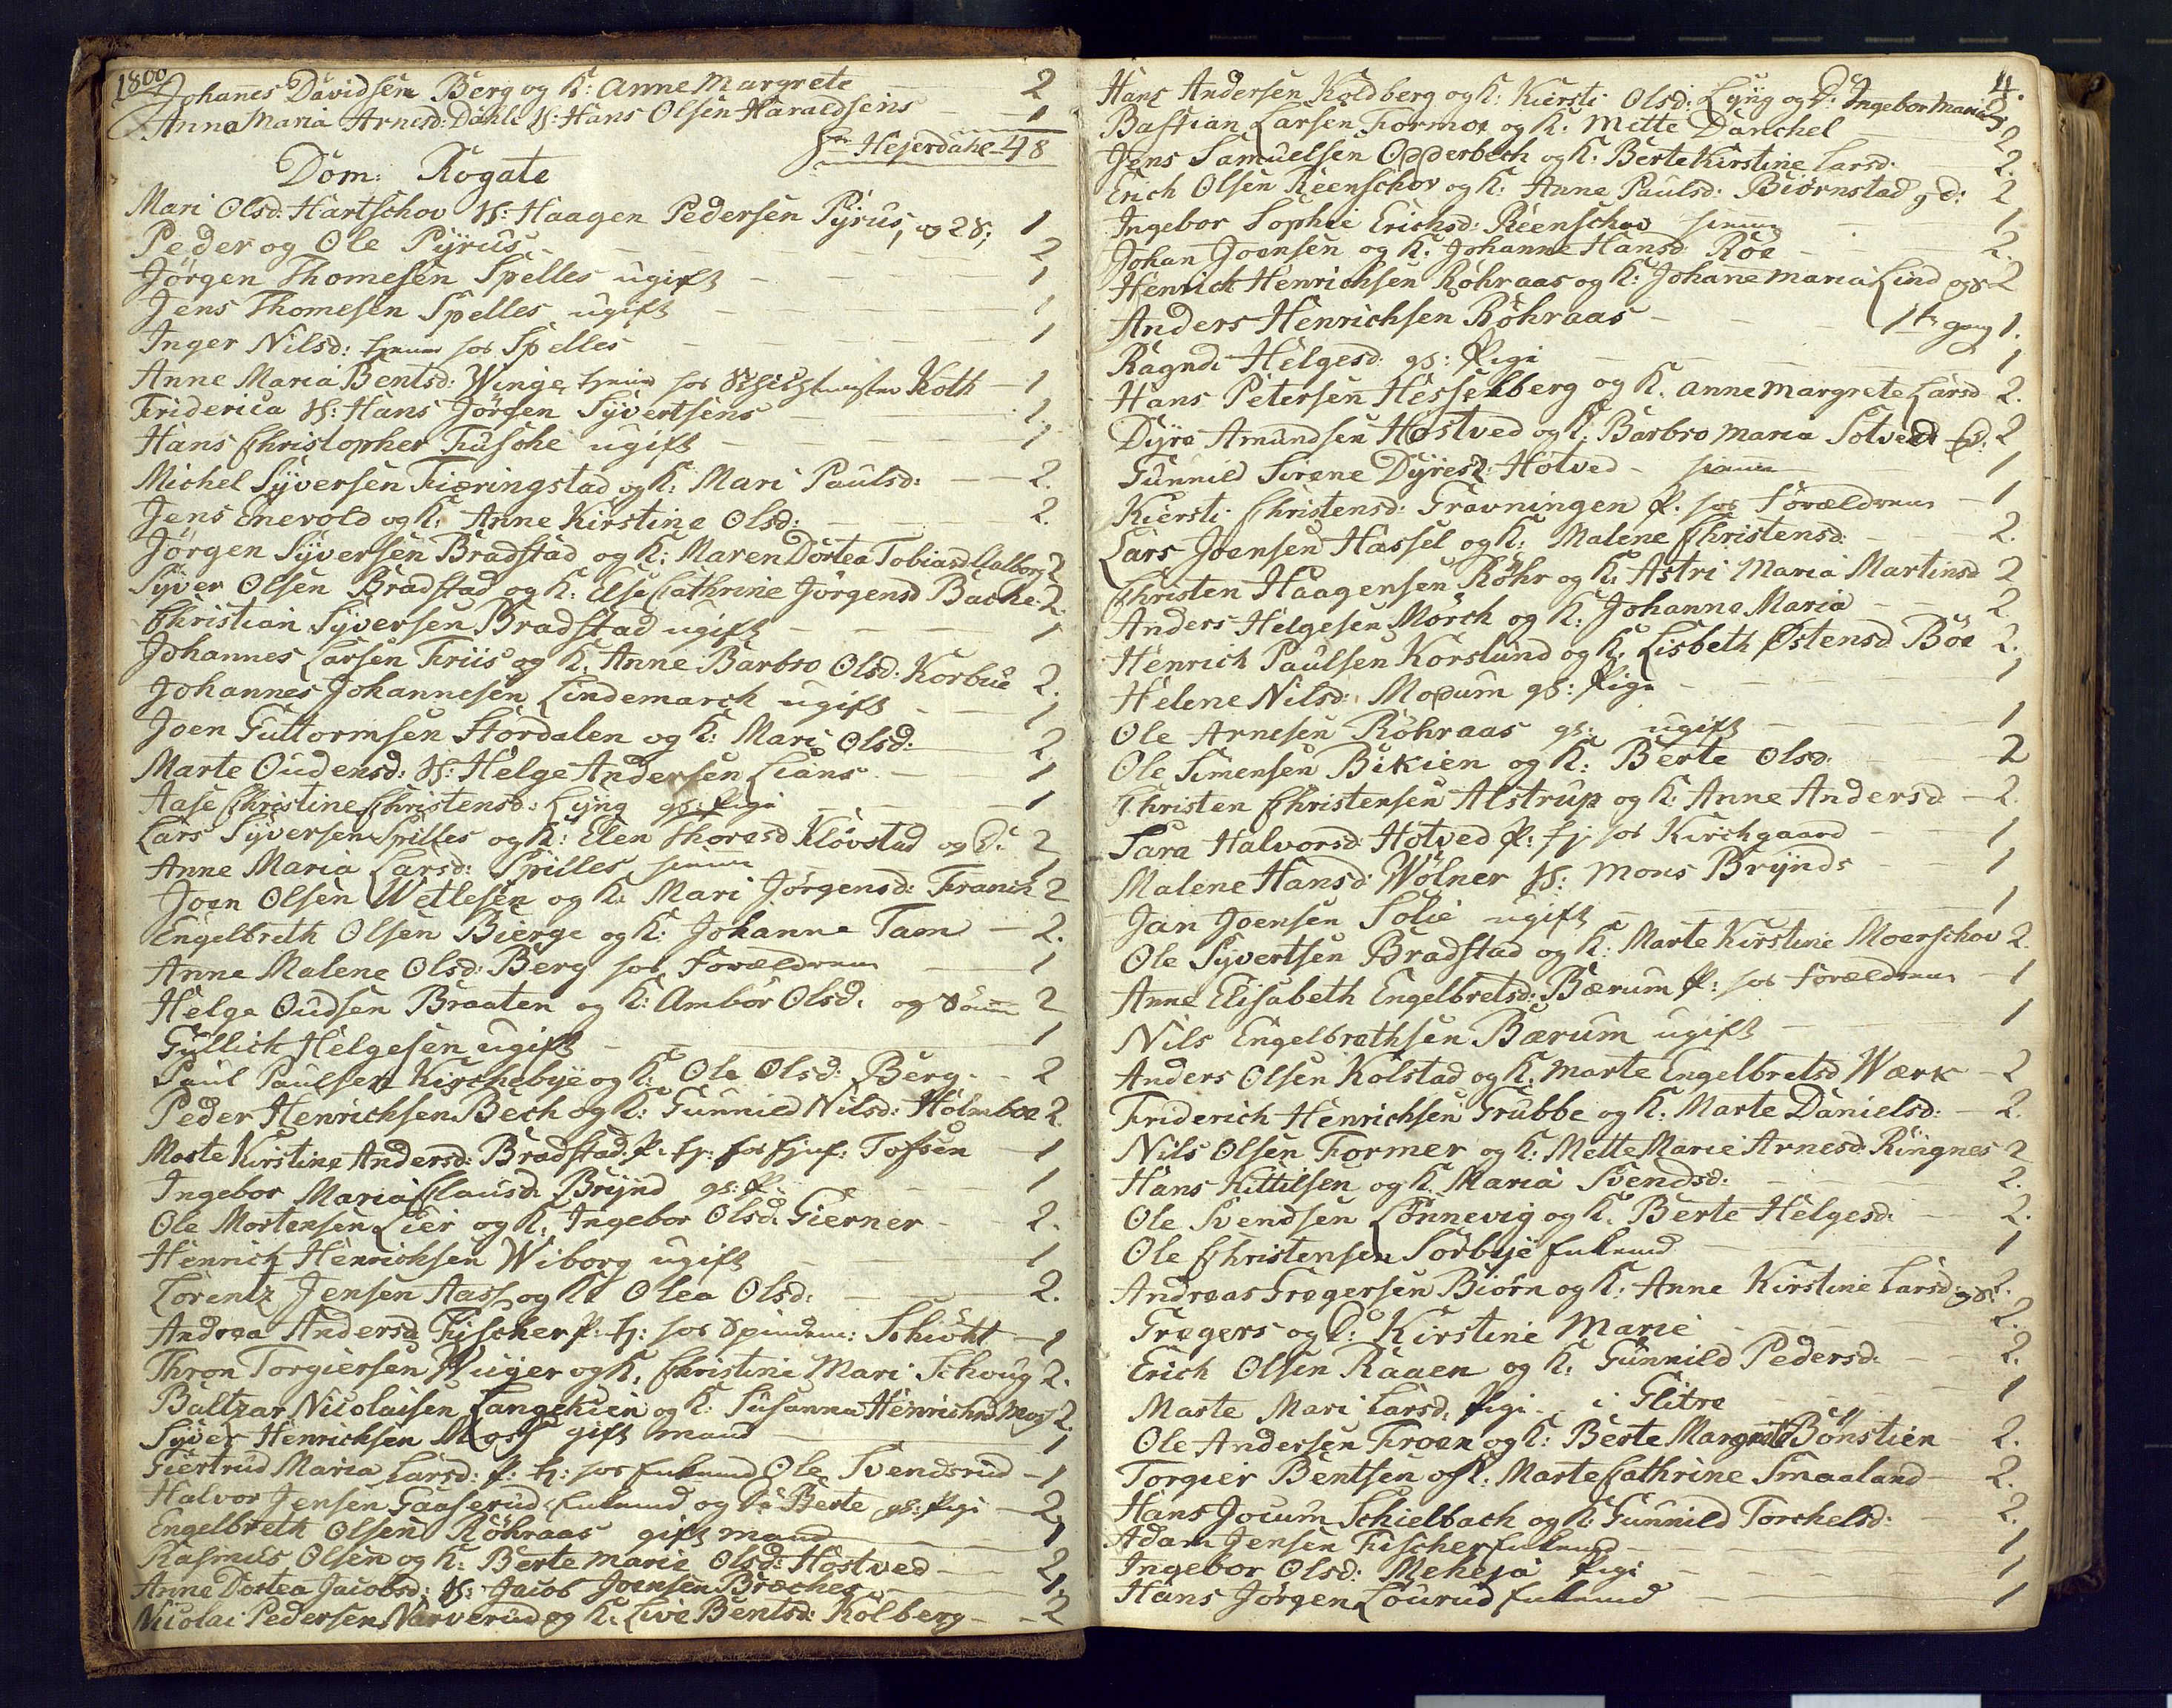 1800
Johanes Davidsen Berg og K: Anne Margrete 2
Anna Maria Arnesd: Dahle H: Hans Olsen Haraldsens 1
Hr Hejerdahl 48
Dom: Rogate
Mari Olsd: Hartschov H: Haagen Pedersen Pÿrus, og 2 S: 1
Peder og Ole Pÿrus 2
Jørgen Thomesen Spelles ugift 1
Jens Thomesen Spelles ugift 1
Inger Nilsd: hos Spelles 1
Anne Maria Bentsd: Winge hos Koth 1
Friderica H: Hans Jørgen Sÿvertsens 1
Hans Christopher Fusche ugift 1
Michel Sÿversen Fieringstad og K: Mari Paulsd: 2.
Jens Enevold og K: Anne Kirstine Olsd: 2.
Jørgen Sÿversen Bradstad og K: Maren Dortea Tobiasd Aalborg 2
Sÿver Olsen Bradstad og K: Else Cathrine Jørgensd Bache 2.
Christian Sÿversen Bradstad ugift 1
Johannes Larsen Friis og K. Anne Barbro Olsd: Korbue 2.
Johannes Johannesen Lindemarch ugift 1
Joen Guttormsen Stordalen og K: Mari Olsd: 2
Marte Oudensd: H: Helge Andersen Lians 1
Aase Christine Christensd: Lÿng gs: Pige 1
Lars Sÿversen Spilles og K: Elen Thoresd Kløvstad og D: 2
Anne Maria Larsd: Spilles 1
Joen Olsen Wetlesen og K: Mari Jørgensd: Franch 2
Engelbreth Olsen Bierge og K: Johanne Tam 2.
Anne Malene Olsd: Berg hos Forældrene 1
Helge Oudsen Braaten og K: Ambor Olsd. og Søn 2
Gullich Helgesen ugift 1
Paul Paulsen Kirchebÿe og K: Ole Olsd: Berg 2
Peder Henrichsen Bech og K: Gunnild Nilsd: Holmboe 2.
Marte Kirstine Andersd: Bradstad P. tj: hos Tofsen 1
Ingebor Maria Clausd: Brÿnd gs: P: 1
Ole Mortensen Lier og K. Ingebor Olsd: Gierner 2.
Henrich Henrichsen Wiborg ugift 1
Lorentz Jensen Aass og K: Olea Olsd: 2.
Andrea Andersd Fischer P: tj: hos Schiøtt 1
Thron Torgiersen Wuger og K. Christine Mari Schoug 2.
Baltzar Nicolaisen Langekien og K: Susanna Henrichsd Moss 2.
Sÿver Henrichsen Moss gift mand 1
Giertrud Maria Larsd: P: tj: hos Enkemd Ole Svendsrud 1
Halvor Jensen Gaaserud Enkemd og D: Berte gs: Pige 2
Engelbreth Olsen Røhraas gift mand 1
Rasmus Olsen og K: Berte Marie Olsd: Hostved 2.
Anne Dortea Jacobsd: H: Jacob Joensen Breches 1.
Nicolai Pedersen Narverud og K: Live Bentsd: Kolberg 2
4.
Hans Andersen Koldberg og K: Kiersti Olsd: Lÿng og D: Ingebor Maria 3
Bastian Larsen Formoe og K: Mette Danchel 2
Jens Samuelsen Opderbech og K: Berte Kirstine Larsd: 2.
Erich Olsen Reenschov og K: Anne Paulsd: Biørnstad og D: 2
Ingebor Sophie Erichsd: Reenschov 1
Johan Joensen og K: Johanne Hansd Roe 2.
Henrich Henrichsen Røhraas og K: Johane Maria Lind og S: 2
Anders Henrichsen Røhraas 1te gang 1.
Ragnd: Helgesd: gs: Pige 1
Hans Petersen Hesselberg og K. Anne Margrete Larsd 2.
Dÿre Amundsen Hostved og K. Barbro Maria Solved D: 2
Gunnild Sirene Dÿresd: Hotved 1
Kiersti Christensd: Gravningen P. hos Forældrene 1
Lars Joensen Hassel og K: Malene Christensd: 2.
Christen Haagensen Røhr og K: Astri Maria Martinsd 2
Anders Helgesen Mørch og K: Johanna Maria 2
Henrich Paulsen Korslund og K: Lisbeth Østensd Bøe 2.
Helene Nilsd: Modum gs: Pige 1
Ole Arnesen Røhraas gs: ugift 1
Ole Simensen Bikien og K: Berte Olsd: 2
Christen Christensen Alstrup og K: Anne Andersd 2.
Sara Halvorsd: Hotved P: tj hos Kirchgaard 1
Malene Hansd: Wølner H: Mons Brÿnds 1
Jan Joensen Solie ugift 1
Ole Sÿvertsen Bradstad og K: Marte Kirstine Moerschov 2.
Anne Elisabeth Engelbretsd: Bærum P: hos Forældrene 1
Nils Engelbrethsen Bærum ugift 1
Anders Olsen Kolstad og K. Marte Engelbretsd Wærk 2
Friderich Henrichsen Grubbe og K. Marte Danielsd: 2.
Nils Olsen Former og K: Mette Marie Arnesd: Ringnes 2
Hans Kittilsen og K. Maria Svendsd: 2.
Ole Svendsen Lønnevig og K. Berte Helgesd: 2.
Ole Christensen Sorbÿe Enkemd 1
Andreas Gregersen Biørn og K: Anne Kirstine Larsd og S: 2.
Gregers og D: Kirstine Marie 2.
Erich Olsen Raaen og K: Gunnild Pedersd: 2.
Marte Mari Larsd: Pige i Glitre 1
Ole Andersen Froen og K: Berte Margrete Bønstien 2.
Torgier Bentsen og K: Marte Cathrine Smaaland 2.
Hans Jocum Schielbach og K: Gunnild Torchelsd: 2.
Adam Jensen Fischer Enkemd 1
Ingebor Olsd: Meheja Pige 1
Hans Jørgen Lourud Enkemd 1